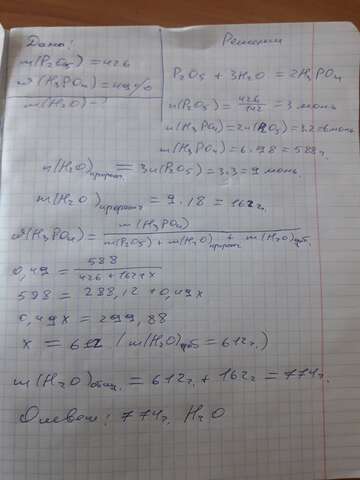 Дано:
m(P₂O₅) = 426
ω(H₃PO₄) = 49%
m(H₂O) - ?
Решение
P₂O₅ + 3H₂O = 2H₃PO₄
n(P₂O₅) = 426/142 = 3 моль
n(H₃PO₄) = 2n(P₂O₅) = 3·2 = 6 моль
m(H₃PO₄) = 6·98 = 588г.
n(H₂O) = 3n(P₂O₅) = 3·3 = 9 моль.
m(H₂O) = 9·18 = 162г.
ω(H₃PO₄) = m(H₃PO₄) / m(P₂O₅) + m(H₂O) + m(H₂O)
0,49 = 588 / 426 + 162 + x
588 = 288,12 + 0,49x
0,49x = 299,88
x = 612 (m(H₂O) = 612г.)
m(H₂O)общ. = 612г + 162г = 774г.
Ответ: 774г. H₂O